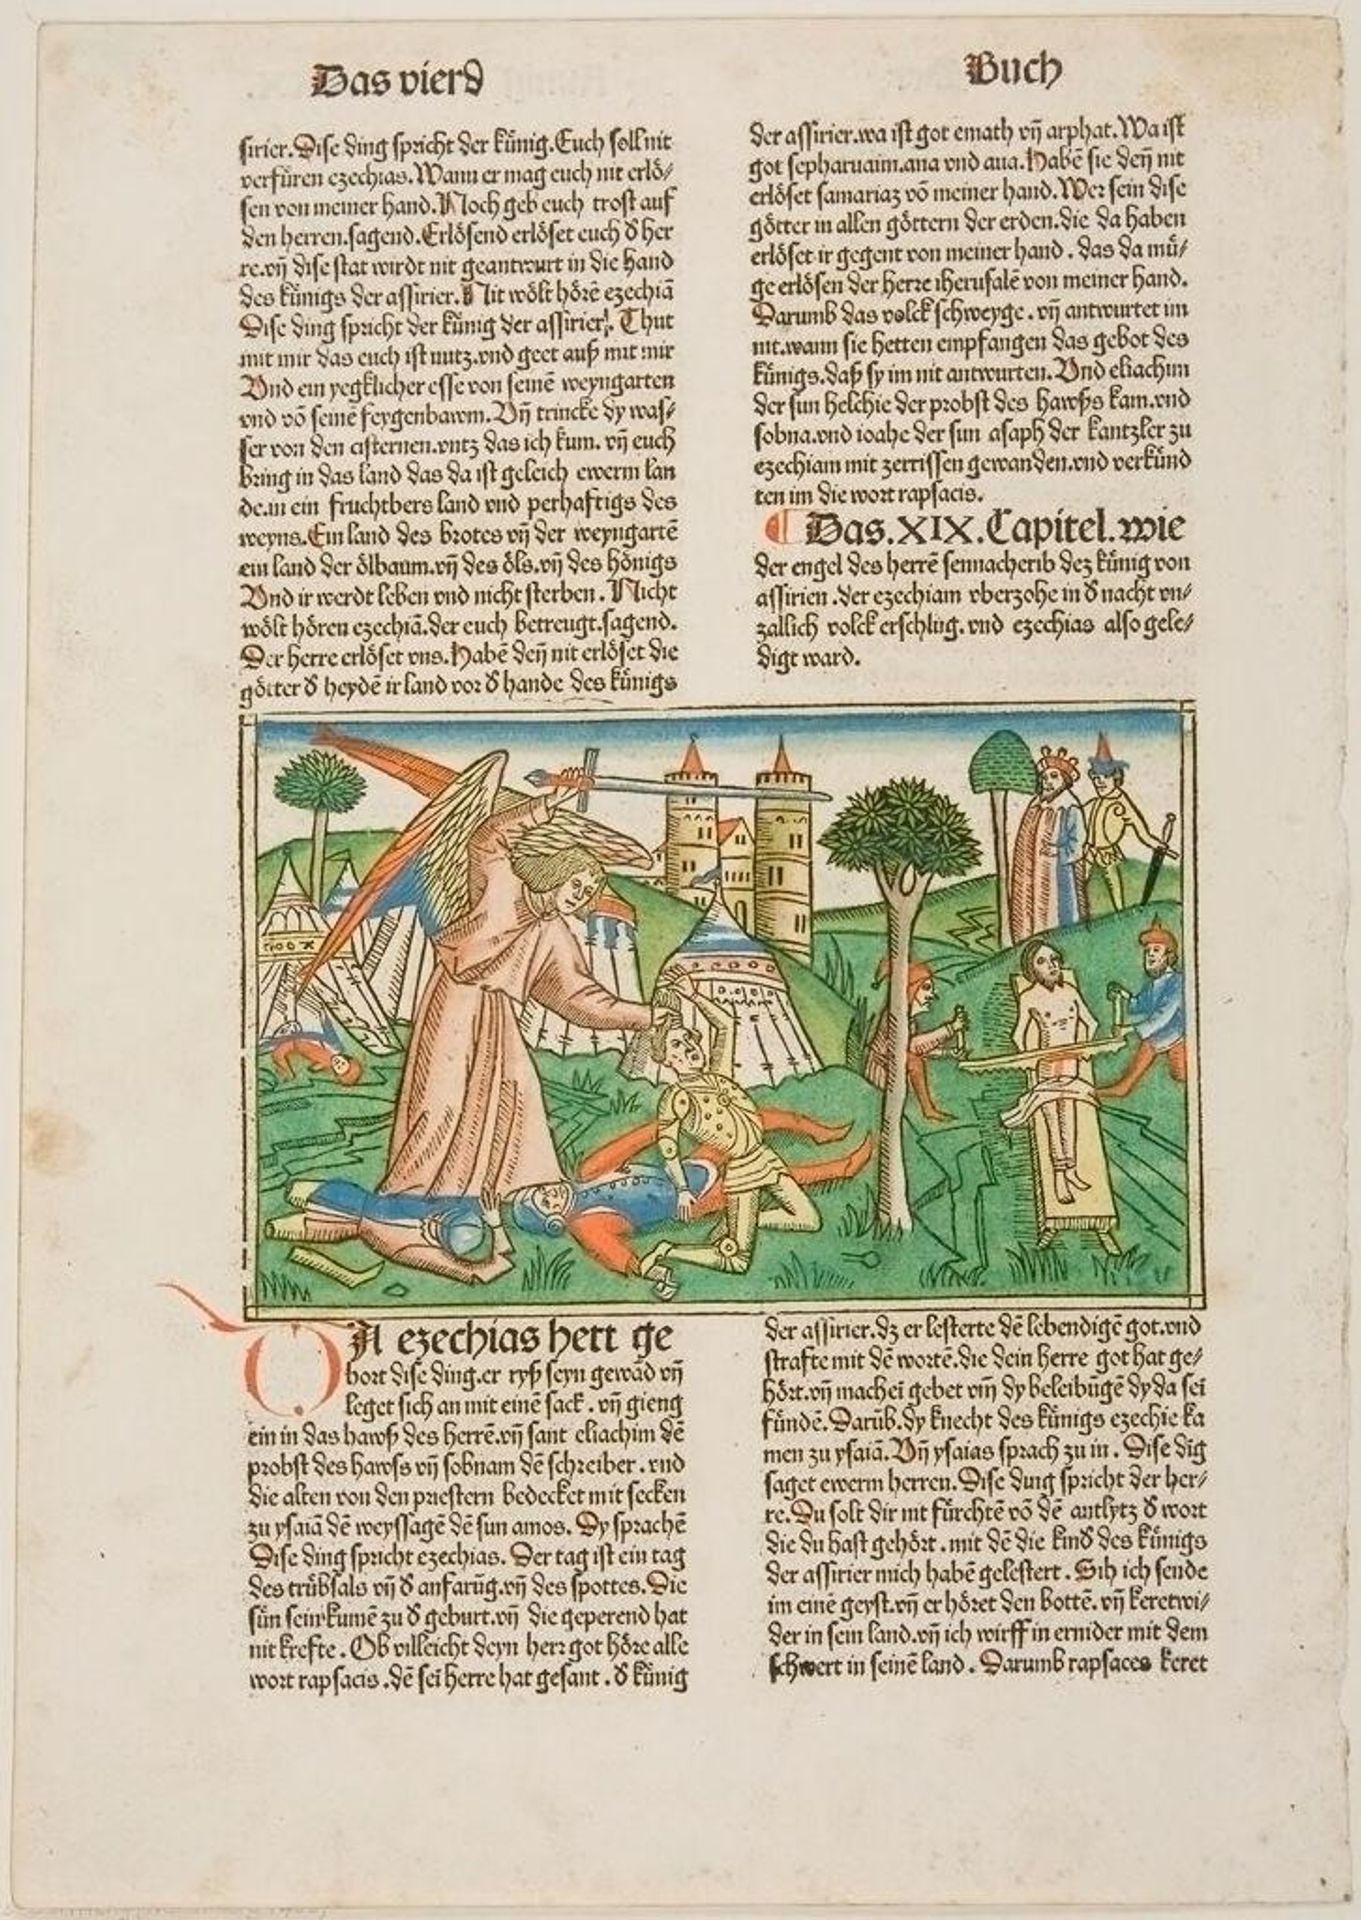 Das vierd
Buch
sirier.Dise ding spricht der künig.Euch soll nit
verfüren ezechias.Wann er mag euch nit erlö⸗
sen von meiner hand.Noch geb euch trost auf
den herren.sagend.Erlösend erlöset euch d̕ her
re.vn̄ dise stat wirdt nit geantwurt in die hand
des künigs der assirier.Nit wölt hörē ezechiā
Dise ding spricht der künig der assirier. Thut
mit mir das euch ist nutz.vnd geet auß mit mir
Vnd ein yegklicher esse von seinē weyngarten
vnd vō seinē feygenbawm.Vn̄ trincke dy was⸗
ser von den cisternen.vntz das ich kum. vn̄ euch
bring in das land das da ist geleich ewerm lan
de.in ein fruchtbers land vnd perhaftigs des
weyns.Ein land des brotes vn̄ der weyngartē
ein land der ölbaum.vn̄ des öls.vn̄ des hönigs
Vnd ir werdt leben vnd nicht sterben. Nicht
wölt hören ezechiā.der euch betreugt.sagend.
Der herre erlöset vns.Habē den̄ nit erlöset die
götter d̕ heydē ir land vor d̕ hande des künigs
der assirier.wa ist got emath vn̄ arphat.Wa ist
got sepharuaim.ana vnd aua.Habē sie den̄ nit
erlöset samariaz vō meiner hand.Wer sein dise
götter in allen göttern der erden.die da haben
erlöset ir gegent von meiner hand. das da mü⸗
ge erlösen der herre iherusalē von meiner hand.
Darumb das volck schweyge. vn̄ antwurtet im
nit.wann sie hetten empfangen das gebot des
künigs.daß sy im nit antwurten.Vnd eliachim
der sun helchie der probst des hawßs kam.vnd
sobna.vnd ioahe der sun asaph der kantzler zu
ezechiam mit zerrissen gewanden.vnd verkünd
ten im die wort rapsacis.
¶ Das.XIX.Capitel.wie
der engel des herrē sennacherib dez künig von
assirien.der ezechiam vberzohe in d̕ nacht vn⸗
zallich volck erschlug.vnd ezechias also gele⸗
digt ward.
DA ezechias hett ge
hort dise ding.er ryß seyn gewād vn̄
leget sich an mit einē sack. vn̄ gieng
ein in das hawß des herrē.vn̄ sant eliachim dē
probst des hawss vn̄ sobnam dē schreiber. vnd
die alten von den priestern bedecket mit secken
zu ysaiā dē weyssagē dē sun amos. Dy sprachē
Dise ding spricht ezechias. Der tag ist ein tag
des trübsals vn̄ d̕ anfarūg.vn̄ des spottes.Die
sün sein kumē zu d̕ geburt.vn̄ die geperend hat
nit krefte. Ob villeicht deyn herr got höre alle
wort rapsacis.dē sei herre hat gesant. d̕ künig
der assirier.dz er lesterte dē lebendigē got.vnd
strafte mit dē wortē.die dein herre got hat ge⸗
hört.vn̄ machei gebet vm̄ dy beleibūgē dy da sei
fündē.Darūb.dy knecht des künigs ezechie ka
men zu ysaiā. Vn̄ ysaias sprach zu in. Dise dig
saget ewerm herren.Dise ding spricht der her⸗
re.Du solt dir nit fürchtē vō dē antlytz d̕ wort
die du hast gehört. mit dē die kind des künigs
der assirier mich habē gelestert. Sih ich sende
im einē geyst.vn̄ er höret den bottē. vn̄ keret wi⸗
der in sein land.vn̄ ich wirff in ernider mit dem
schwert in seinē land. Darumb rapsaces keret